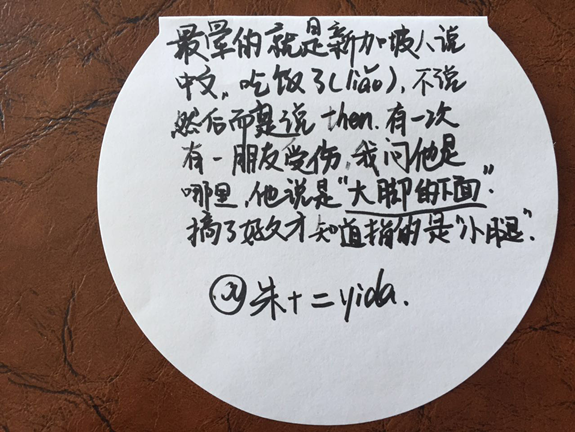 最晕的就是新加坡人说
中文。吃饭了(liǎo)，不说
然后而是说 then. 有一次
有一朋友受伤，我问他是
哪里，他说是“大脚的下面”
搞了好久才知道指的是“小腿”.
朱十二yida.